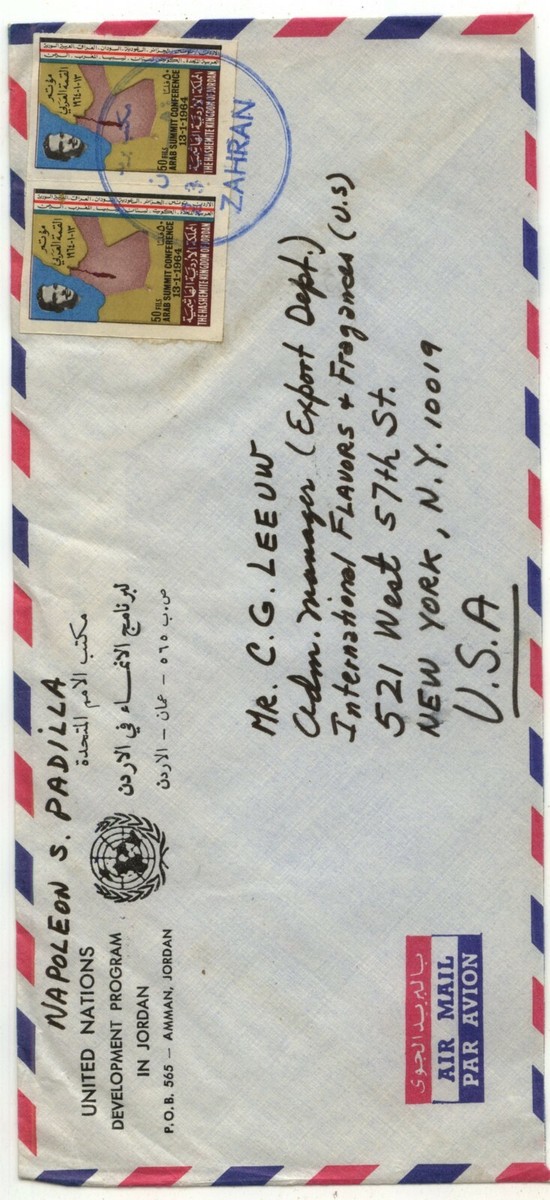 NAPOLEON S. PADILLA
UNITED NATIONS
DEVELOPMENT PROGRAM
IN JORDAN
P.O.B. 565 — AMMAN, JORDAN
مكتب الأمم المتحدة
لبرنامج الانماء في الاردن
ص.ب ٥٦٥ — عمان — الاردن
مؤتمر
القمة العربي
١٣-١-١٩٦٤
50 FILS
ARAB SUMMIT CONFERENCE
13-1-1964
المملكة الأردنية الهاشمية
THE HASHEMITE KINGDOM OF JORDAN
مؤتمر
القمة العربي
١٣-١-١٩٦٤
50 FILS
ARAB SUMMIT CONFERENCE
13-1-1964
المملكة الأردنية الهاشمية
THE HASHEMITE KINGDOM OF JORDAN
مكتب
ZAHRAN
MR. C.G. LEEUW
Adm. Manager (Export Dept.)
International FLAVORS & Fragances (U.S)
521 West 57th St.
NEW YORK, N.Y. 10019
U.S.A
بالبريد الجوى
AIR MAIL
PAR AVION